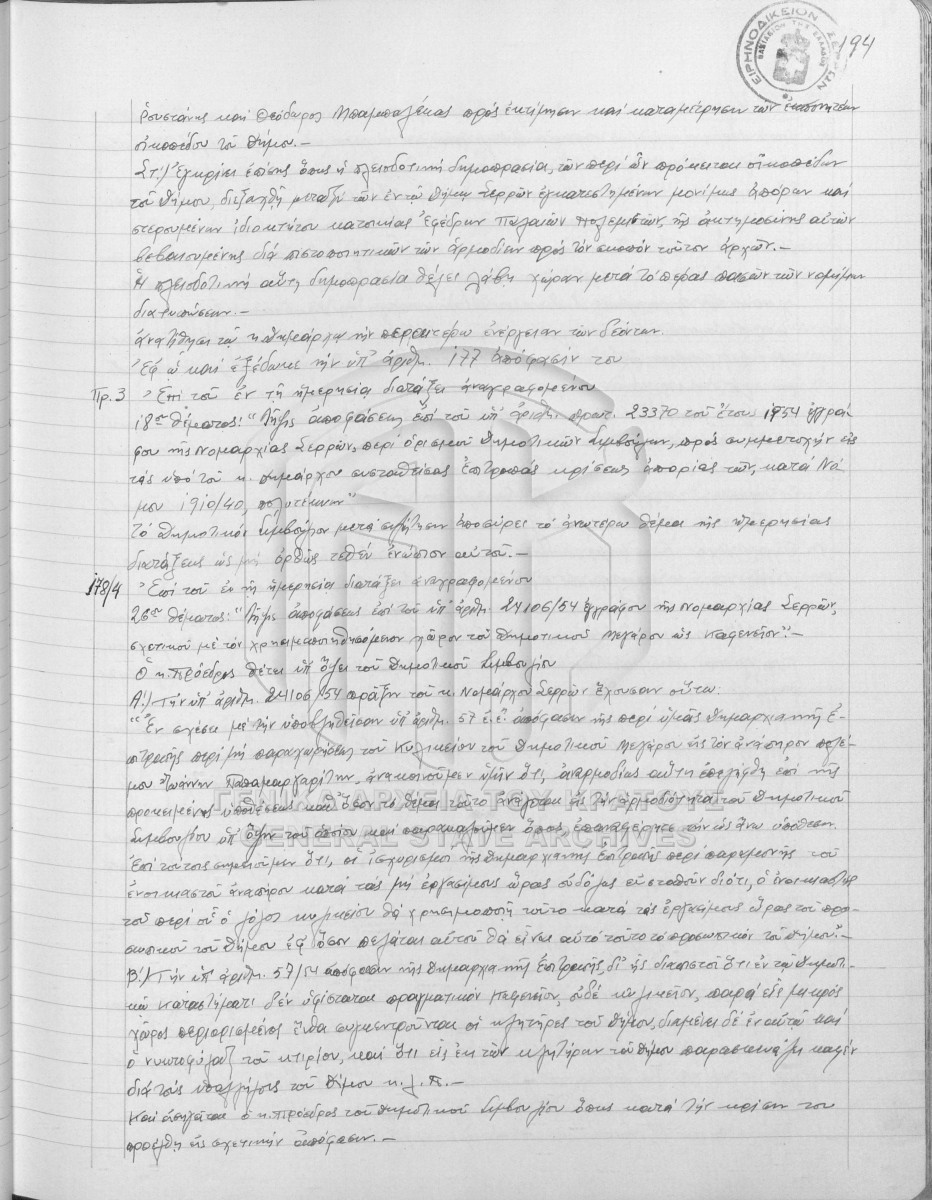 194
ΕΙΡΗΝΟΔΙΚΕΙΟΝ ΣΕΡΡΩΝ
ΒΑΣΙΛΕΙΟΝ ΤΗΣ ΕΛΛΑΔΟΣ
Ρουστάνης καί Θεόδωρος Μπαμπαλέκας πρός ἐκτίμησιν καί καταμέτρησιν τῶν
οἰκοπέδου τοῦ Δήμου.-
Στ.) Ἐγκρίνει ἐπίσης ὅπως ἡ πλειοδοτική δημοπρασία, τῶν περί ὧν πρόκειται οἰκοπέδων
τοῦ Δήμου, διεξαχθῇ μεταξύ τῶν ἐν τῷ Δήμῳ Σερρῶν ἐγκατεστημένων μονίμως ἀπόρων καί
στερουμένων ἰδιοκτήτου κατοικίας Ἐφέδρων Παλαιῶν Πολεμιστῶν, τῆς ἀκτημοσύνης αὐτῶν
βεβαιουμένης διά πιστοποιητικῶν τῶν ἁρμοδίων πρός τόν σκοπόν τοῦτον ἀρχῶν.-
Ἡ πλειοδοτική αὕτη δημοπρασία θέλει λάβῃ χώραν μετά τό πέρας πασῶν τῶν νομίμων
διατυπώσεων.-
ἀνατίθησι τῷ κ. Δημάρχῳ τήν περαιτέρω ἐνέργειαν τῶν δεόντων.
Ἐφ' ᾧ καί ἐξέδωκε τήν ὑπ' ἀριθμ. 177 ἀπόφασίν του
Πρ. 3 Ἐπί τοῦ ἐν τῇ ἡμερησίᾳ διατάξει ἀναγραφομένου
18ου θέματος: "Λῆψις ἀποφάσεως ἐπί τοῦ ὑπ' ἀριθμ. πρωτ. 23370 τοῦ ἔτους 1954 ἐγγρά-
φου τῆς Νομαρχίας Σερρῶν, περί ὁρισμοῦ Δημοτικῶν Συμβούλων, πρός συμμετοχήν εἰς
τάς ὑπό τοῦ κ. Δημάρχου συσταθείσας Ἐπιτροπάς κρίσεως ἀπορίας τῶν, κατά Νό-
μου 1910/40, πολυτέκνων"
Τό Δημοτικόν Συμβούλιον μετά συζήτησιν ἀποσύρει τό ἀνωτέρω θέμα τῆς ἡμερησίας
διατάξεως ὡς μή ὀρθῶς τεθέν ἐνώπιον αὐτοῦ.-
178/4 Ἐπί τοῦ ἐν τῇ ἡμερησίᾳ διατάξει ἀναγραφομένου
26ου θέματος: "Λῆψις ἀποφάσεως ἐπί τοῦ ὑπ' ἀριθμ. 24106/54 ἐγγράφου τῆς Νομαρχίας Σερρῶν,
σχετικοῦ μέ τόν χρησιμοποιηθησόμενον χῶρον τοῦ Δημοτικοῦ Μεγάρου ὡς καφενεῖον".-
Ὁ κ. Πρόεδρος θέτει ὑπ' ὄψει τοῦ Δημοτικοῦ Συμβουλίου
Α') Τήν ὑπ' ἀριθμ. 24106/54 πρᾶξιν τοῦ κ. Νομάρχου Σερρῶν ἔχουσαν οὕτω:
"Ἐν σχέσει μέ τήν ὑποβληθεῖσαν ὑπ' ἀριθμ. 57 ἐ.ἔ. ἀπόφασιν τῆς περί ὑμᾶς Δημαρχιακῆς Ἐ-
πιτροπῆς περί μή παραχωρήσεως τοῦ Κυλικείου τοῦ Δημοτικοῦ Μεγάρου εἰς τόν ἀνάπηρον πολέ-
μου Ἰωάννην Παπαμαργαρίτην, ἀνακοινοῦμεν ὑμῖν ὅτι, ἀναρμοδίως αὕτη ἐπελήφθη ἐπί τῆς
προκειμένης ὑποθέσεως καθ' ὅσον τό θέμα τοῦτο ἀνάγεται εἰς τήν ἁρμοδιότητα τοῦ Δημοτικοῦ
Συμβουλίου ὑπ' ὄψιν τοῦ ὁποίου καί παρακαλοῦμεν ὅπως ἐπαναφέρητε τήν ὡς ἄνω ὑπόθεσιν.
Ἐπί τούτοις σημειοῦμεν ὅτι, οἱ ἰσχυρισμοί τῆς Δημαρχιακῆς Ἐπιτροπῆς περί παραμονῆς τοῦ
ἐνοικιαστοῦ ἀναπήρου κατά τάς μή ἐργασίμους ὥρας οὐδόλως εὐσταθοῦν διότι, ὁ ἐνοικιαστής
τοῦ περί οὗ ὁ λόγος κυλικείου θά χρησιμοποιῇ τοῦτο κατά τάς ἐργασίμους ὥρας τοῦ προ-
σωπικοῦ τοῦ Δήμου ἐφ' ὅσον πελάται αὐτοῦ θά εἶναι αὐτό τοῦτο τό προσωπικόν τοῦ Δήμου".-
Β') Τήν ὑπ' ἀριθμ. 57/54 ἀπόφασιν τῆς Δημαρχιακῆς Ἐπιτροπῆς, δι' ἧς διαπιστοῖ ὅτι ἐν τῷ Δημοτι-
κῷ Καταστήματι δέν ὑφίσταται πραγματικόν Καφενεῖον, οὐδέ κυλικεῖον, παρά εἷς μικρός
χῶρος περιορισμένος ἔνθα συγκεντροῦνται οἱ κλητῆρες τοῦ Δήμου, διαμένει δέ ἐν αὐτῷ καί
ὁ νυκτοφύλαξ τοῦ κτιρίου, καί ὅτι εἷς ἐκ τῶν κλητήρων τοῦ Δήμου παρασκευάζει καφέν
διά τούς ὑπαλλήλους τοῦ Δήμου κ.λ.π.-
Καί εἰσηγεῖται ὁ κ. Πρόεδρος τοῦ Δημοτικοῦ Συμβουλίου ὅπως κατά τήν κρίσιν του
προέλθῃ εἰς σχετικήν ἀπόφασιν.-
ΓΕΝΙΚΑ ΑΡΧΕΙΑ ΤΟΥ ΚΡΑΤΟΥΣ
GENERAL STATE ARCHIVES